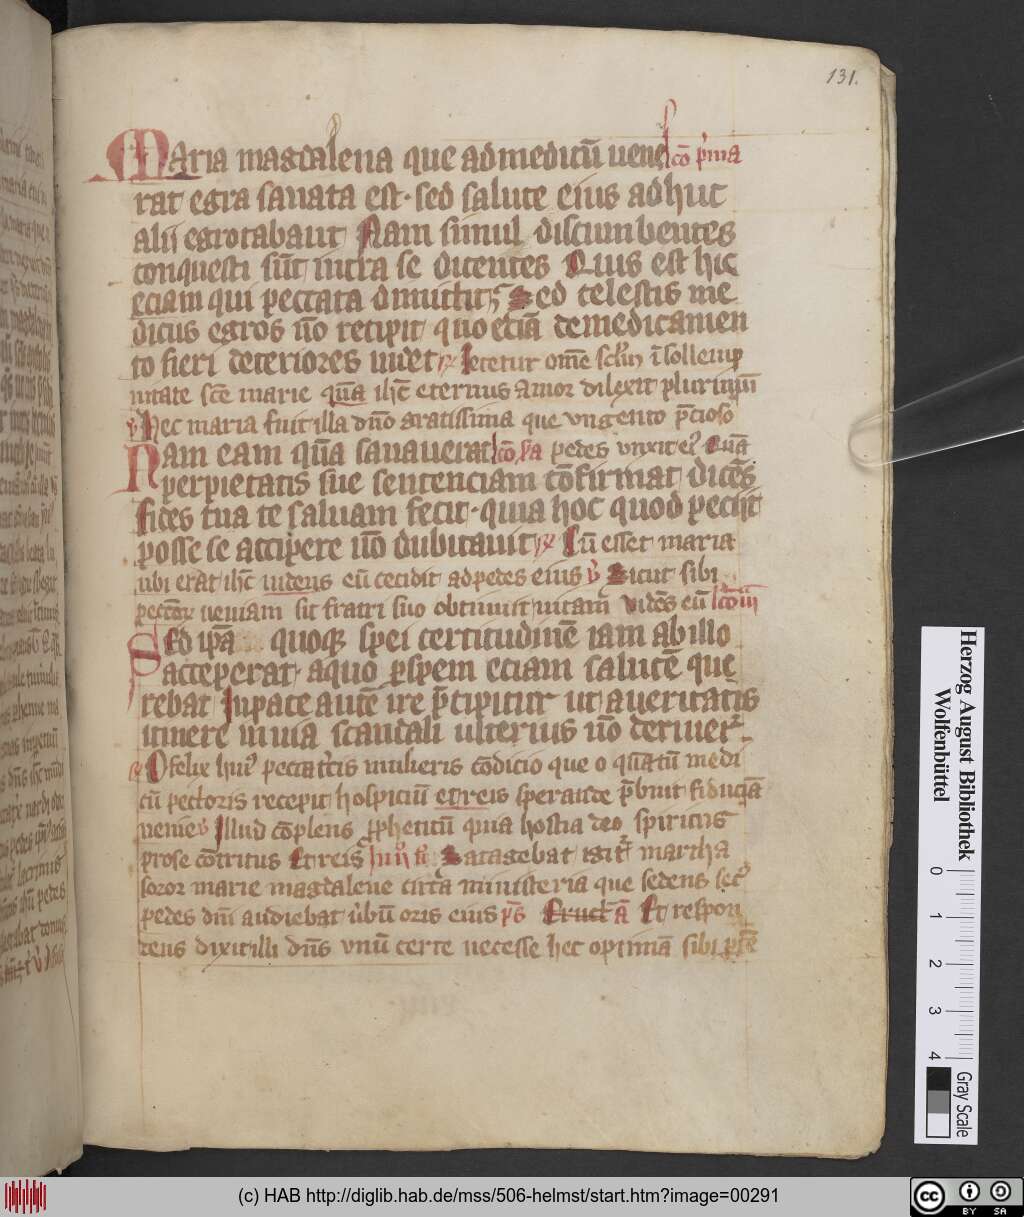 131.
Maria magdalena que ad medicū vene lcō p'ma
rat egra sanata est · sed salute eius adhuc
alii egrotabant Nam simul discumbentes
conquesti sūt intra se dicentes Quis est hic
eciam qui peccata dimittit Sed celestis me
dicus egros nō recipit quos eciā de medicamen
to fieri deteriores videt ℟ Letetur om̄e sclm̄ ī sollemp
nitate sc̄e marie quā ih̄c eternus amor dilexit plurimū
℣ Hec maria fuit illa dn̄o gratissima que vngento p̄cioso
Nam eam quā sanauerat lcō s'a pedes vnxit ei' Quā
per pietatis sue sentenciam cōfirmat dicēs
fides tua te saluam fecit · quia hoc quod peciit
posse se accipere nō dubitauit ℟ Cū esset maria
ubi erat ih̄c videns eū cecidit ad pedes eius ℣ Sicut sibi
peccōꝝ veniam sic fratri suo obtinuit vitam Vidēs eū
Sed ip̄a quoqꝫ spei certitudinē iam ab illo
acceperat a quo p spem eciam salutē que
rebat In pace autē ire p̄cipitur ut a veritatis
itinere in via scandali ulterius nō deriuet'
℟ O felix hui' peccat'cis mulieris cōdicio que o quātū medi
cū pectoris recepit hospiciū et reis sperande p̄buit fiduciā
venie ℣ Illud cōplens ꝓpheticū quia hostia deo spiritus
pro se cōtritus Et reis Satagebat igit' martha
soror marie magdalene circa ministeria que sedens sec'
pedes dn̄i audiebat v'bū oris eius p̄s Eructā Et respon
dens dixit illi dn̄s vnū certe necesse hec optimā sibi p̄tē
Herzog August Bibliothek
Wolfenbüttel
0 1 2 3 4
Gray Scale
(c) HAB http://diglib.hab.de/mss/506-helmst/start.htm?image=00291
cc BY SA